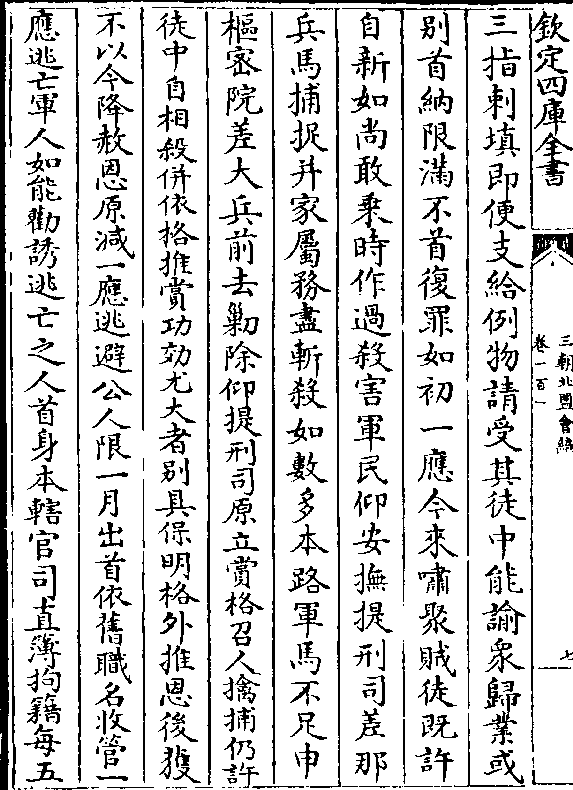 欽定四庫全書
三朝北盟會編
卷一百一
七
三指刺填即便支給例物請受其徒中能諭衆歸業或
别首納限滿不首復罪如初一應今來嘯聚賊徒既許
自新如尚敢乘時作過殺害軍民仰安撫提刑司差那
兵馬捕捉并家屬務盡斬殺如數多本路軍馬不足申
樞密院差大兵前去勦除仰提刑司原立賞格召人擒捕仍許
徒中自相殺併依格推賞功效尤大者别具保明格外推恩後獲
不以今降赦恩原減一應逃避公人限一月出首依舊職名收管一
應逃亡軍人如能勸誘逃亡之人首身本轄官司直簿拘籍每五